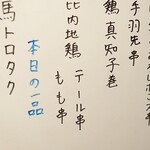 手羽先串
鶏真知子巻
比内地鶏 テール串
もも串
本日の一品
馬トロタク